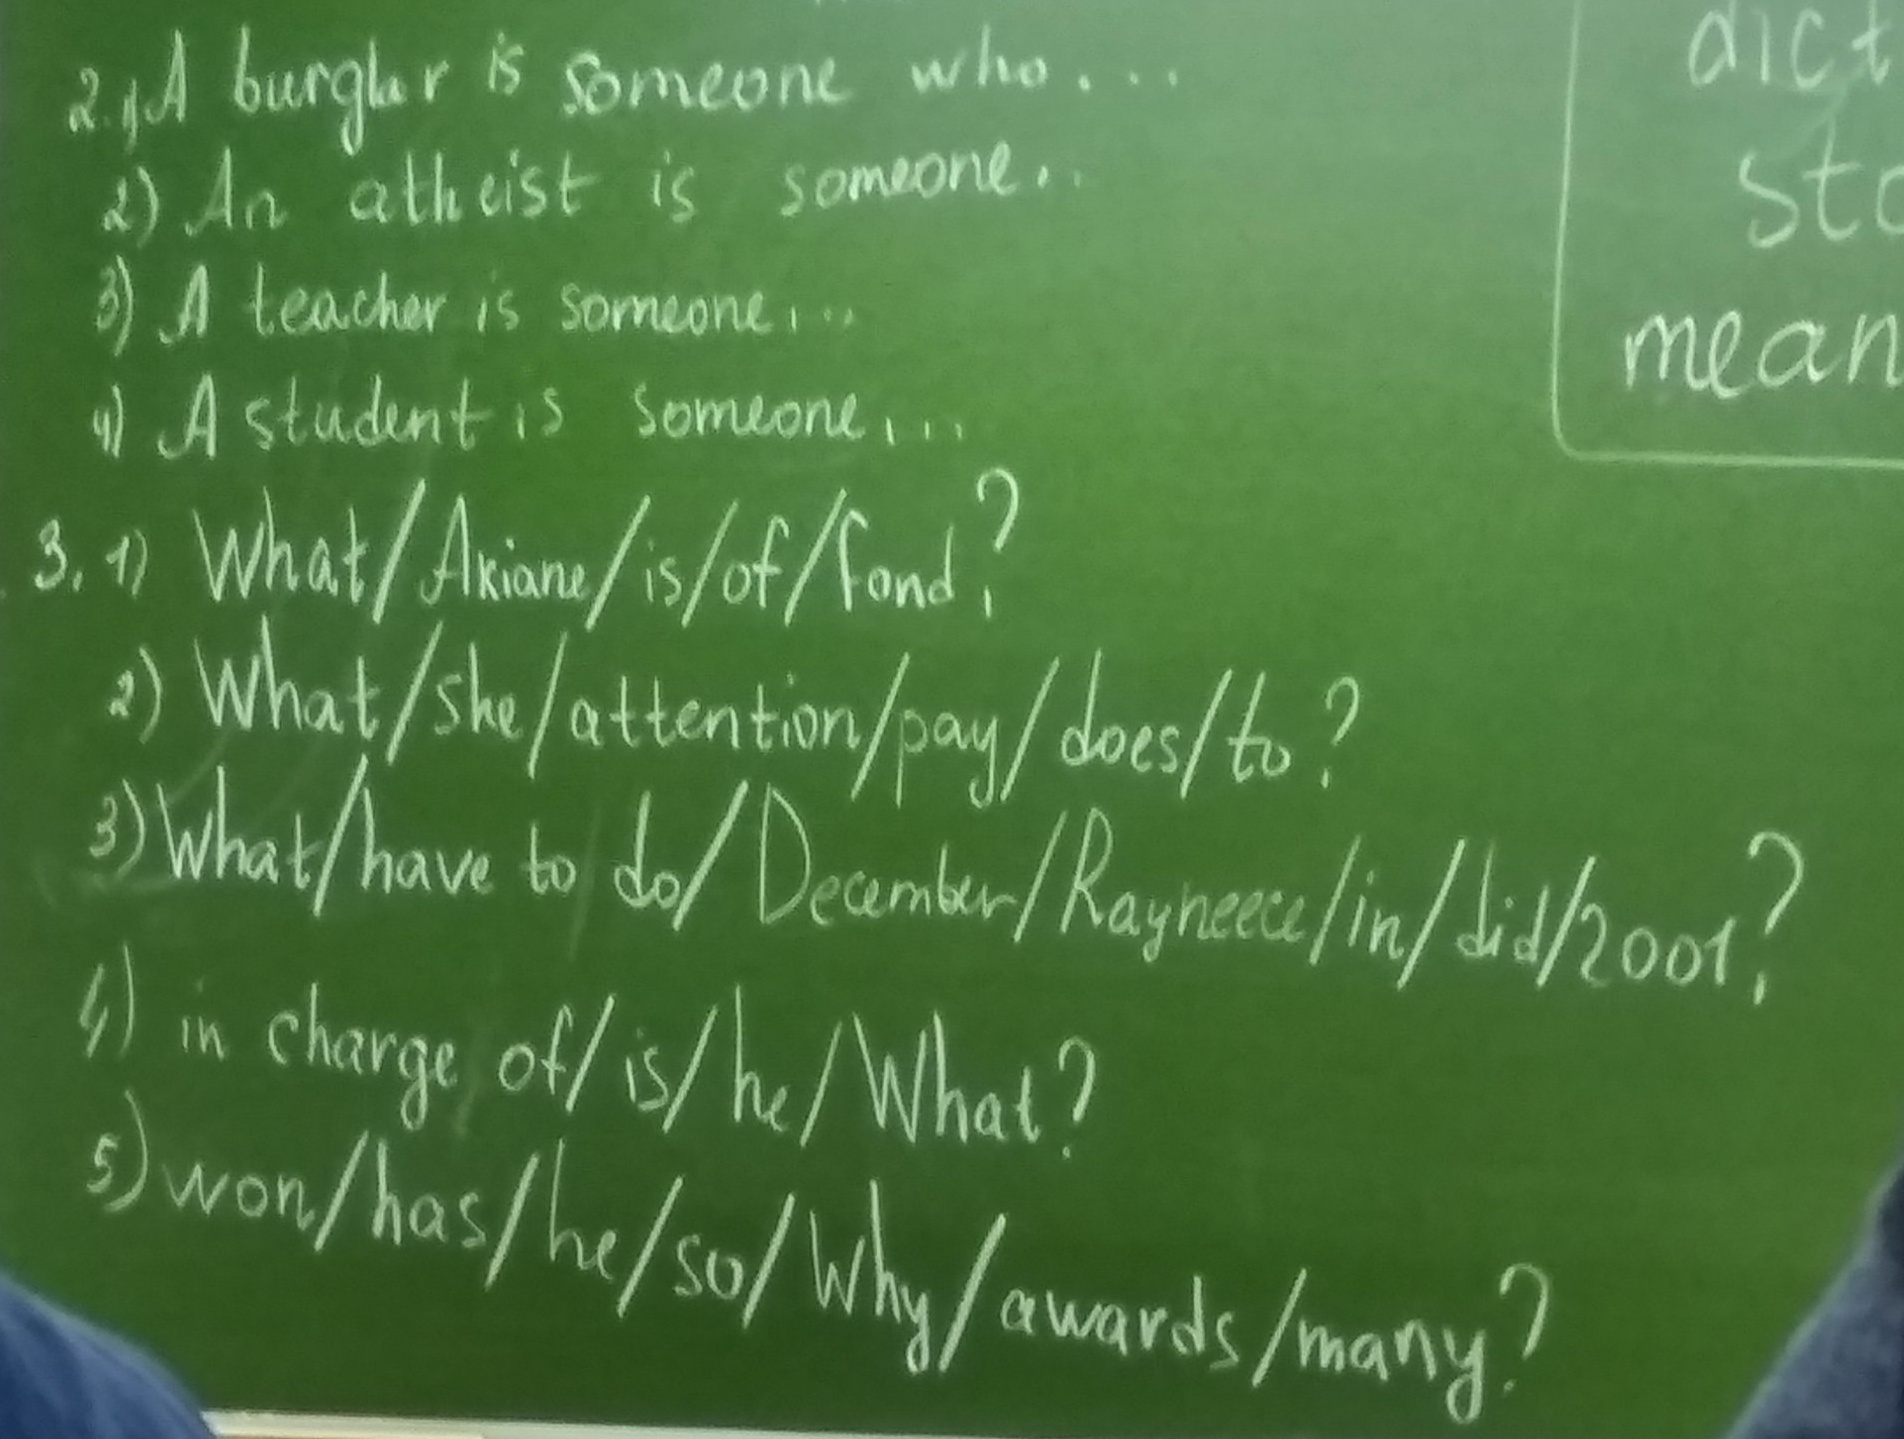 2. 1) A burglar is someone who....
2) An atheist is someone...
3) A teacher is someone....
4) A student is someone....
3. 1) What/Akiane/is/of/fond?
2) What/she/attention/pay/does/to?
3) What/have to do/December/Rayneece/in/did/2001?
4) in charge of/is/he/What?
5) won/has/he/so/Why/awards/many?
dict
sto
mean